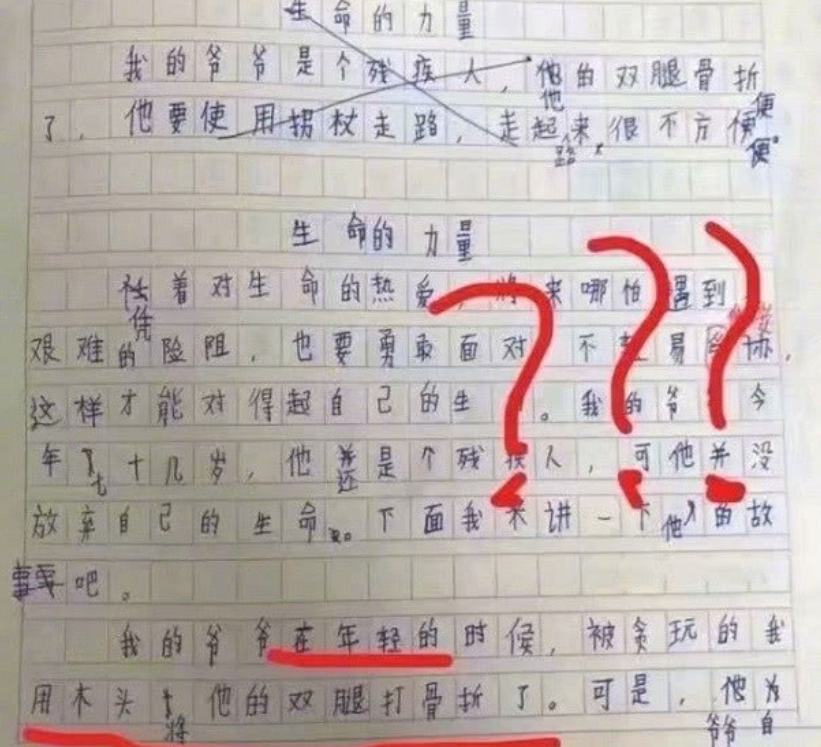 生命的力量
我的爷爷是个残疾人，他的双腿骨折
了，他要使用拐杖走路，走起路来很不方便。
生命的力量
凭着对生命的热爱，将来哪怕遇到
艰难的险阻，也要勇敢面对，不轻易妥协，
这样才能对得起自己的生。我的爷今
年七十几岁，他还是个残疾人，可他并没
放弃自己的生命。下面我来讲一下他的故
事吧。
我的爷爷在年轻的时候，被贪玩的我
用木头将他的双腿打骨折了。可是，他为
爷爷自